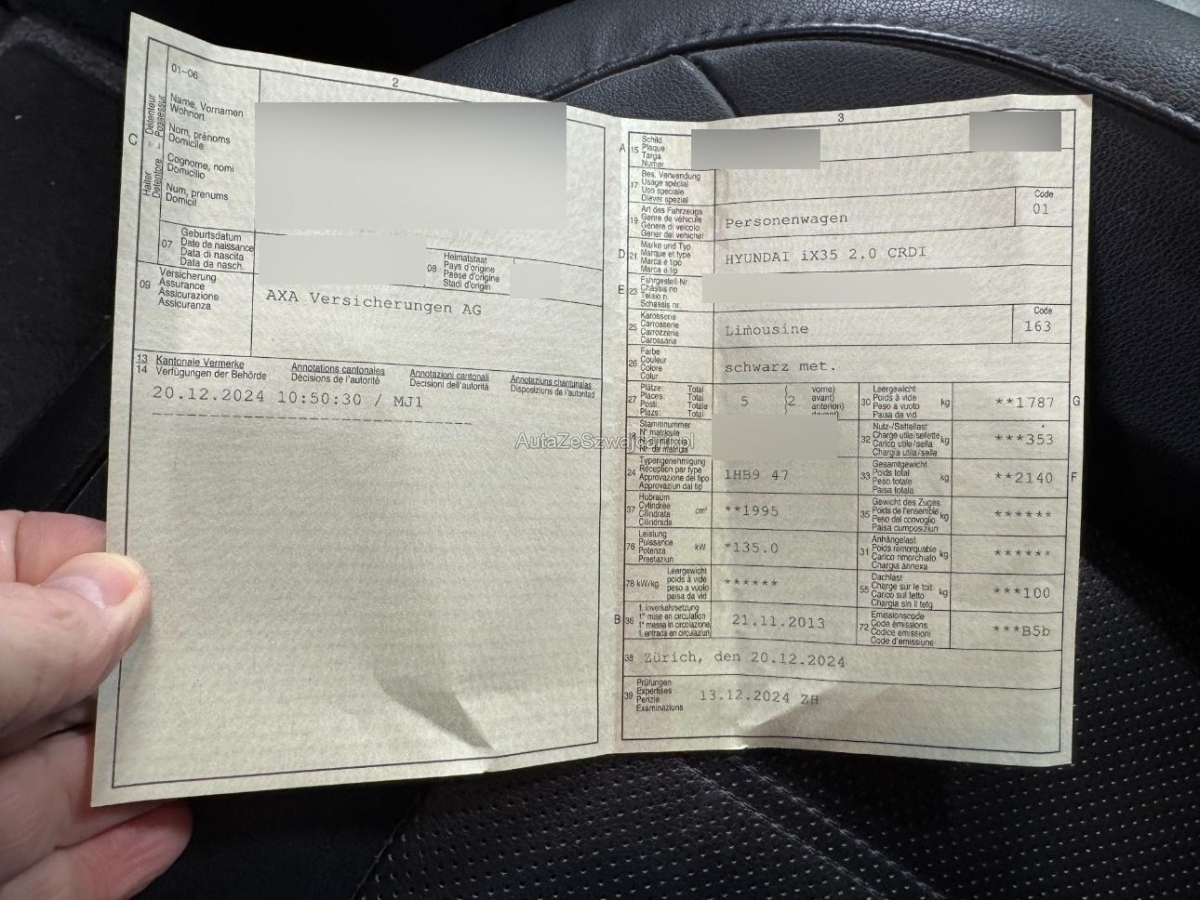 2
01-06
C
Halter Détenteur
Detentore Possessur
Name, Vornamen
Wohnort
Nom, prénoms
Domicile
Cognome, nomi
Domicilio
Num, prenums
Domicil
07
Geburtsdatum
Date de naissance
Data di nascita
Data da nasch.
08
Heimatstaat
Pays d'origine
Paese d'origine
Stadi d'origin
09
Versicherung
Assurance
Assicurazione
Assicuranza
AXA Versicherungen AG
13
14
Kantonale Vermerke
Verfügungen der Behörde
Annotations cantonales
Décisions de l'autorité
Annotazioni cantonali
Decisioni dell'autorità
Annotaziuns chantunalas
Disposiziuns da l'autoritad
20.12.2024 10:50:30 / MJ1
AutaZeSzwajcarii.pl
3
A 15
Schild
Plaque
Targa
Numer
17
Bes. Verwendung
Usage spécial
Uso speciale
Diever spezial
19
Art des Fahrzeugs
Genre de véhicule
Genere di veicolo
Gener dal vehichel
Personenwagen
Code
01
D 21
Marke und Typ
Marque et type
Marca e tipo
Marca e tip
HYUNDAI iX35 2.0 CRDI
E 23
Fahrgestell-Nr
Châssis no
Telaio n.
Schassis nr.
25
Karosserie
Carrosserie
Carrozzeria
Carossaria
Limousine
Code
163
26
Farbe
Couleur
Colore
Colur
schwarz met.
27
Plätze: Total
Places: Total
Posti: Totale
Plazs: Total
5
(2
vorne)
avant)
anteriori)
30
Leergewicht
Poids à vide
Peso a vuoto
Paisa da vid
kg
**1787
G
Stammnummer
N° matricule
32
Nutz-/Sattellast
Charge utile/sellette
Carico utile/sella
Chargia utila/sella
kg
***353
24
Typengenehmigung
Réception par type
Approvazione del tipo
Approvaziun dal tip
1HB9 47
33
Gesamtgewicht
Poids total
Peso totale
Paisa totala
kg
**2140
F
37
Hubraum
Cylindrée
Cilindrata
Cilindrada
cm³
**1995
35
Gewicht des Zuges
Poids de l'ensemble
Peso del convoglio
Paisa cumposiziun
kg
******
76
Leistung
Puissance
Potenza
Prestaziun
kW
*135.0
31
Anhängelast
Poids remorquable
Carico rimorchiato
Chargia annexa
kg
******
78 kW/kg
Leergewicht
poids à vide
peso a vuoto
paisa da vid
******
55
Dachlast
Charge sur le toit
Carico sul tetto
Chargia sin il tetg
kg
***100
B 36
1. Inverkehrsetzung
1re mise en circulation
1a messa in circolazione
1. entrada en circulaziun
21.11.2013
72
Emissionscode
Code émissions
Codice emissioni
Code d'emissiuns
***B5b
38 Zürich, den 20.12.2024
39
Prüfungen
Expertises
Perizie
Examinaziuns
13.12.2024 ZH